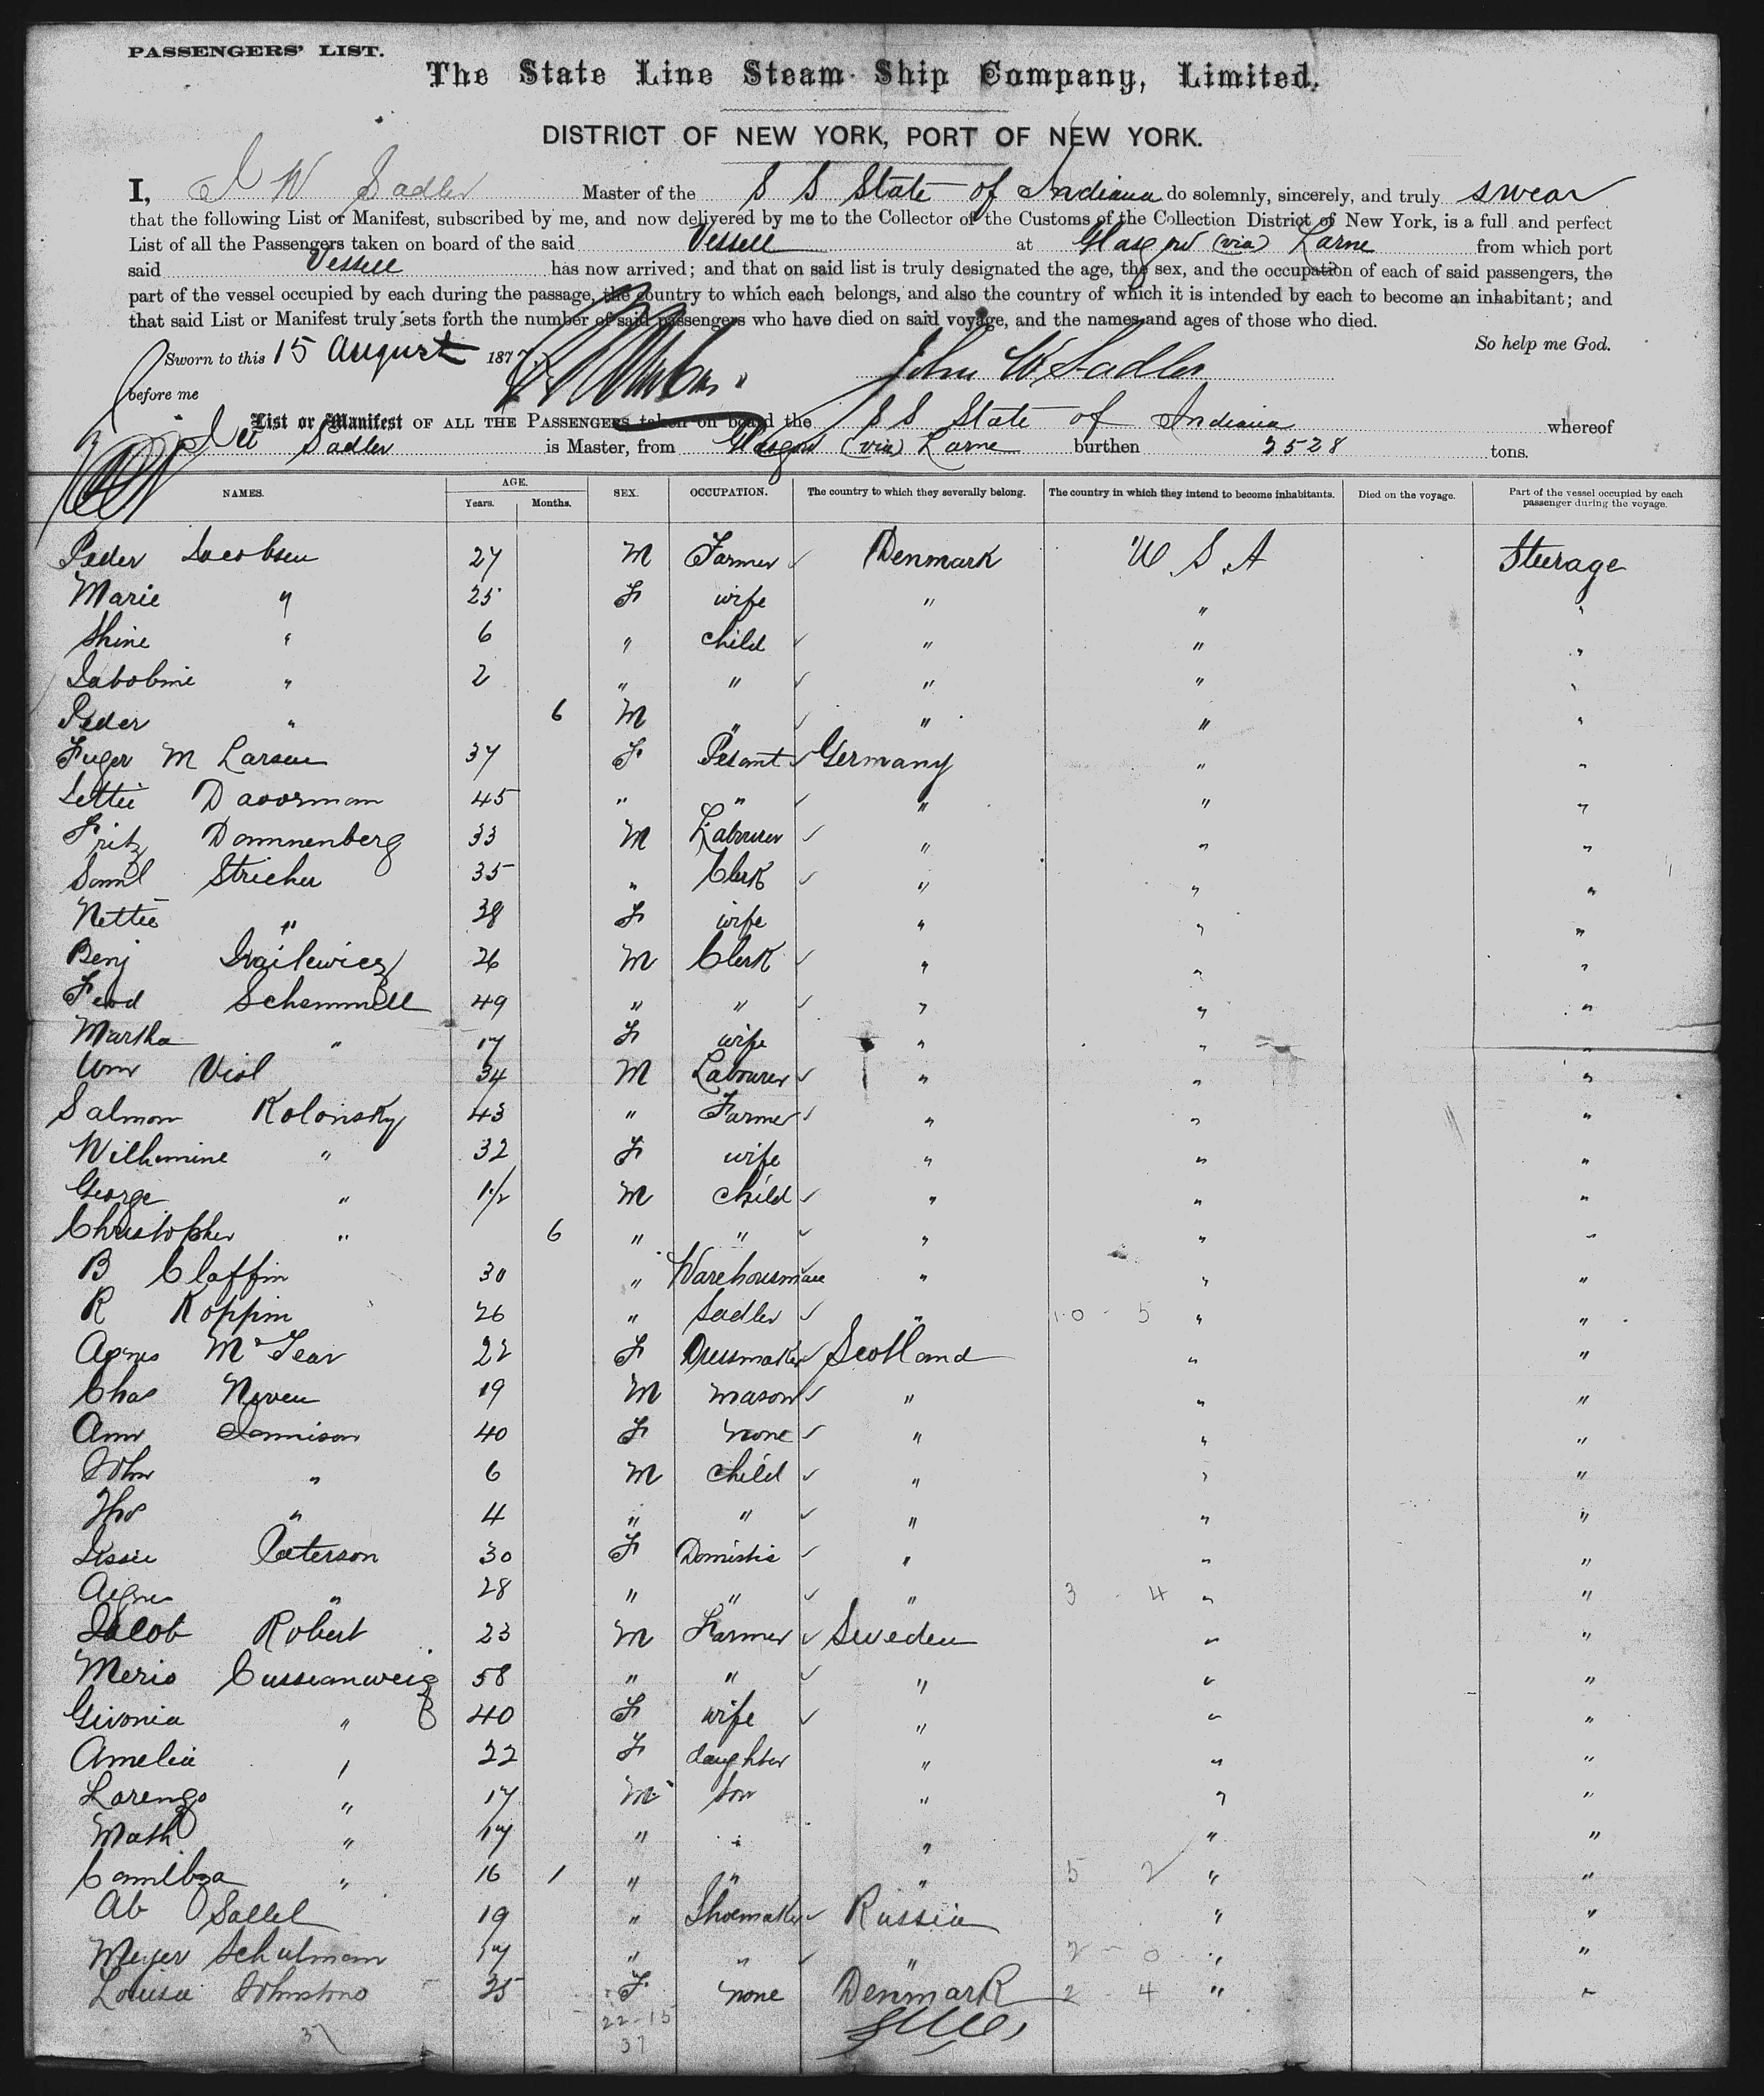 PASSENGERS' LIST.
The State Line Steam Ship Company, Limited.
DISTRICT OF NEW YORK, PORT OF NEW YORK.
I, J W Sadler Master of the S S State of Indiana do solemnly, sincerely, and truly swear
that the following List or Manifest, subscribed by me, and now delivered by me to the Collector of the Customs of the Collection District of New York, is a full and perfect
List of all the Passengers taken on board of the said Vessell at Glasgow (via) Larne from which port
said Vessell has now arrived; and that on said list is truly designated the age, the sex, and the occupation of each of said passengers, the
part of the vessel occupied by each during the passage, the country to which each belongs, and also the country of which it is intended by each to become an inhabitant; and
that said List or Manifest truly sets forth the number of said passengers who have died on said voyage, and the names and ages of those who died.
So help me God.
Sworn to this 15 August 1877
John W Sadler
before me
List or Manifest OF ALL THE PASSENGERS taken on board the S S State of Indiana whereof
Sadler is Master, from Glasgow (via) Larne burthen 2528 tons.
NAMES. AGE. Years. Months. SEX. OCCUPATION. The country to which they severally belong. The country in which they intend to become inhabitants. Died on the voyage. Part of the vessel occupied by each passenger during the voyage.
Peder Jacobsen 27 M Farmer Denmark U S A Steerage
Marie " 25 F wife " " "
Stine " 6 " child " " "
" 2 " " " " "
Peder " 6 M " " " "
M Larsen 37 F Pesant Germany " "
Settie Davorman 45 " " " " "
Fritz Dannenberg 33 M Labourer " " "
Saml Stricher 35 " Clerk " " "
Nettie " 38 F wife " " "
Benj 26 M Clerk " " "
Ferd Schemmell 49 " " " " "
Martha " 17 F wife " " "
Wm Viol 34 M Labourer " " "
Salmon Kolonsky 43 " Farmer " " "
Wilhmine " 32 F wife " " "
George " 1 1/2 M child " " "
Christopher " 6 " " " " "
B Claffin 30 " Warehousman " " "
R Koppin 26 " Sadler " 10 - 5 " "
Agnes McFear 22 F Dressmaker Scotland " "
Chas Niven 19 M mason " " "
Ann Jamison 40 F none " " "
John " 6 M child " " "
Thos " 4 " " " " "
Jessie Paterson 30 F Domistic " " "
Agnes " 28 " " " 3 - 4 " "
Jacob Robert 23 M Farmer Sweden " "
Merio Cussianweig 58 " " " " "
Givonia " 40 F wife " " "
Amelia " 22 F daughter " " "
Lorenzo " 17 M son " " "
Math " 17 " " " " "
" 16 1 " " " 5 2 " "
Ab Sallel 19 " Shoemaker Russia " "
Meyer Schulman 17 " " " 2 - 0 " "
Louisa Johnstone 25 F none Denmark 2 - 4 " "
22-15
37 37